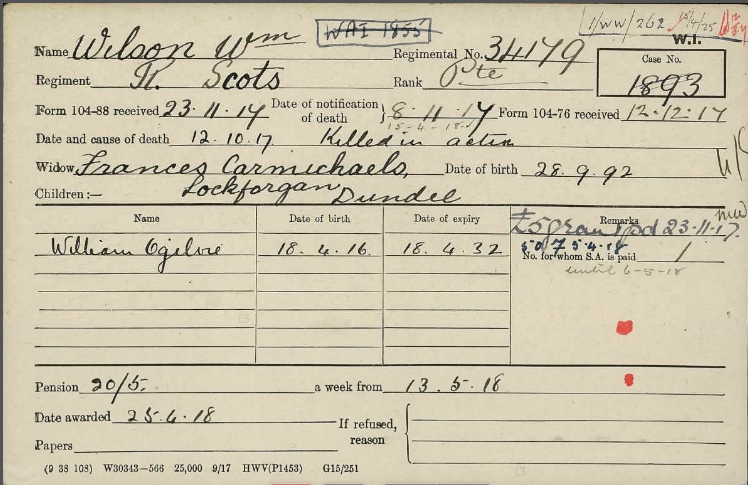 WAI 1855
1/WW/262 15/4/25
W.I.
Name Wilson Wm Regimental No. 34179
Case No.
1893
Regiment R. Scots Rank Pte
Form 104-88 received 23.11.17 Date of notification of death } 8.11.17 Form 104-76 received 12.12.17
15-4-18
Date and cause of death 12.10.17 Killed in action
Widow Frances Carmichaels, Date of birth 28.9.92
Children:— Lockforgan Dundee
Name Date of birth Date of expiry Remarks
£5 grant pd 23.11.17.
William Ogilvie 18.4.16. 18.4.32
5.4.18
No. for whom S.A. is paid 1
until 6-5-18
Pension 20/5. a week from 13.5.18
Date awarded 25.4.18 If refused, reason
Papers
(9 38 108) W30343—566 25,000 9/17 HWV(P1453) G15/251